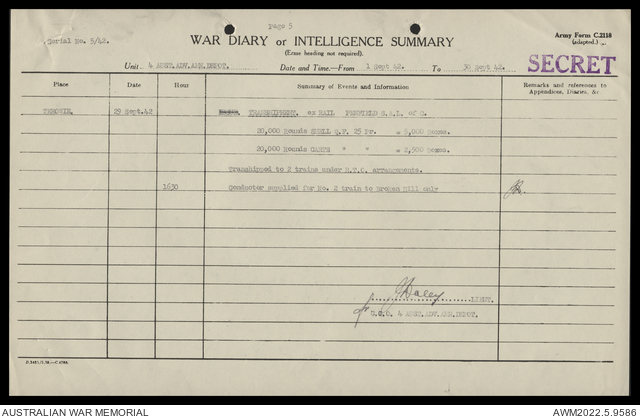 Page 5
Serial No. 5/42.
WAR DIARY or INTELLIGENCE SUMMARY
(Erase heading not required).
Army Form C.2118
(adapted.)
Unit. 4 AUST.ADV.AMN.DEPOT. Date and Time.—From 1 Sept 42. To 30 Sept 42.
SECRET
Place
Date
Hour
Summary of Events and Information
Remarks and references to Appendices, Diaries, &c
TEROWIE. 29 Sept.42 TRANSHIPMENT. ex RAIL PENFIELD S.A.L. of C.
20,000 Rounds SHELL Q.F. 25 Pr. = 5,000 Boxes.
20,000 Rounds CARTS " " = 2,500 Boxes.
Transhipped to 2 trains under R.T.O. arrangements.
1630 Conductor supplied for No. 2 train to Broken Hill only
Daley
LIEUT.
O.C. 4 AUST.ADV.AMN.DEPOT.
AUSTRALIAN WAR MEMORIAL
AWM2022.5.9586